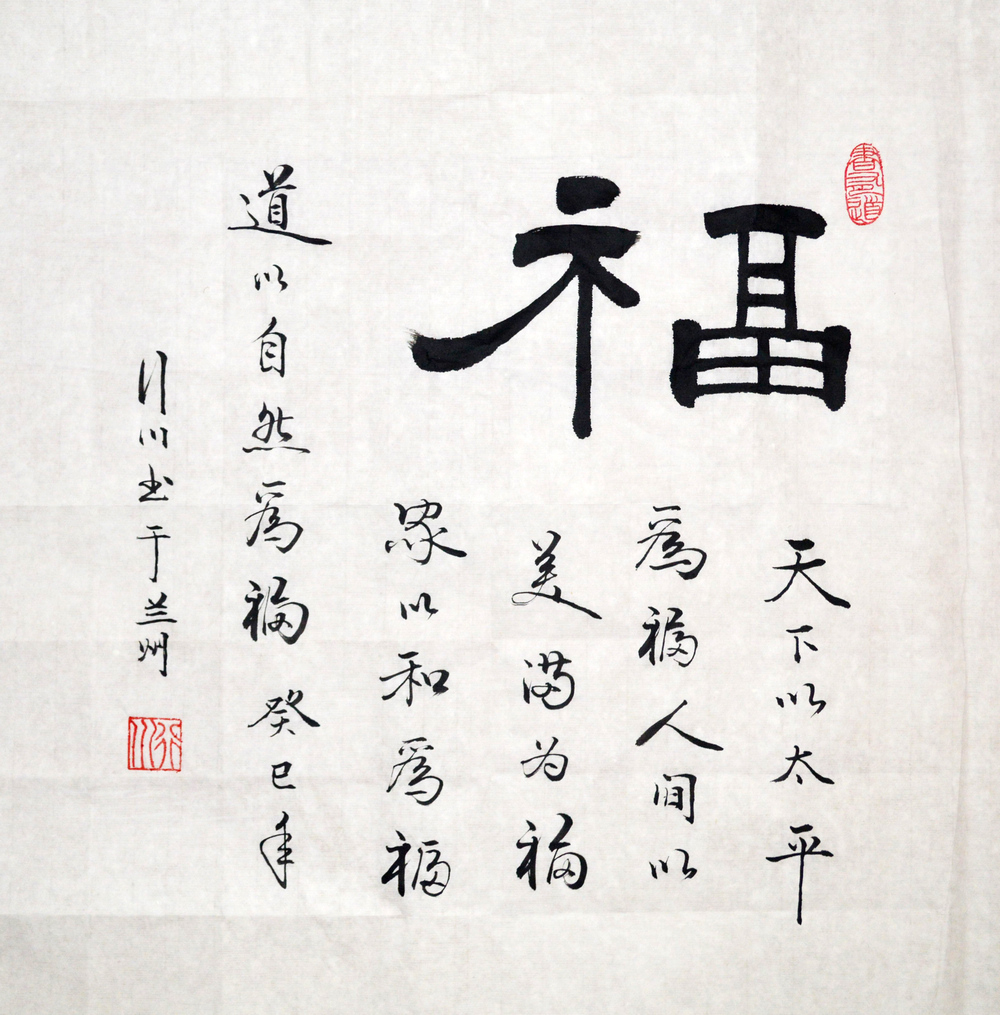 福
天下以太平
為福人間以
美满为福
家以和為福
道以自然為福 癸巳年
行川书于兰州
行川